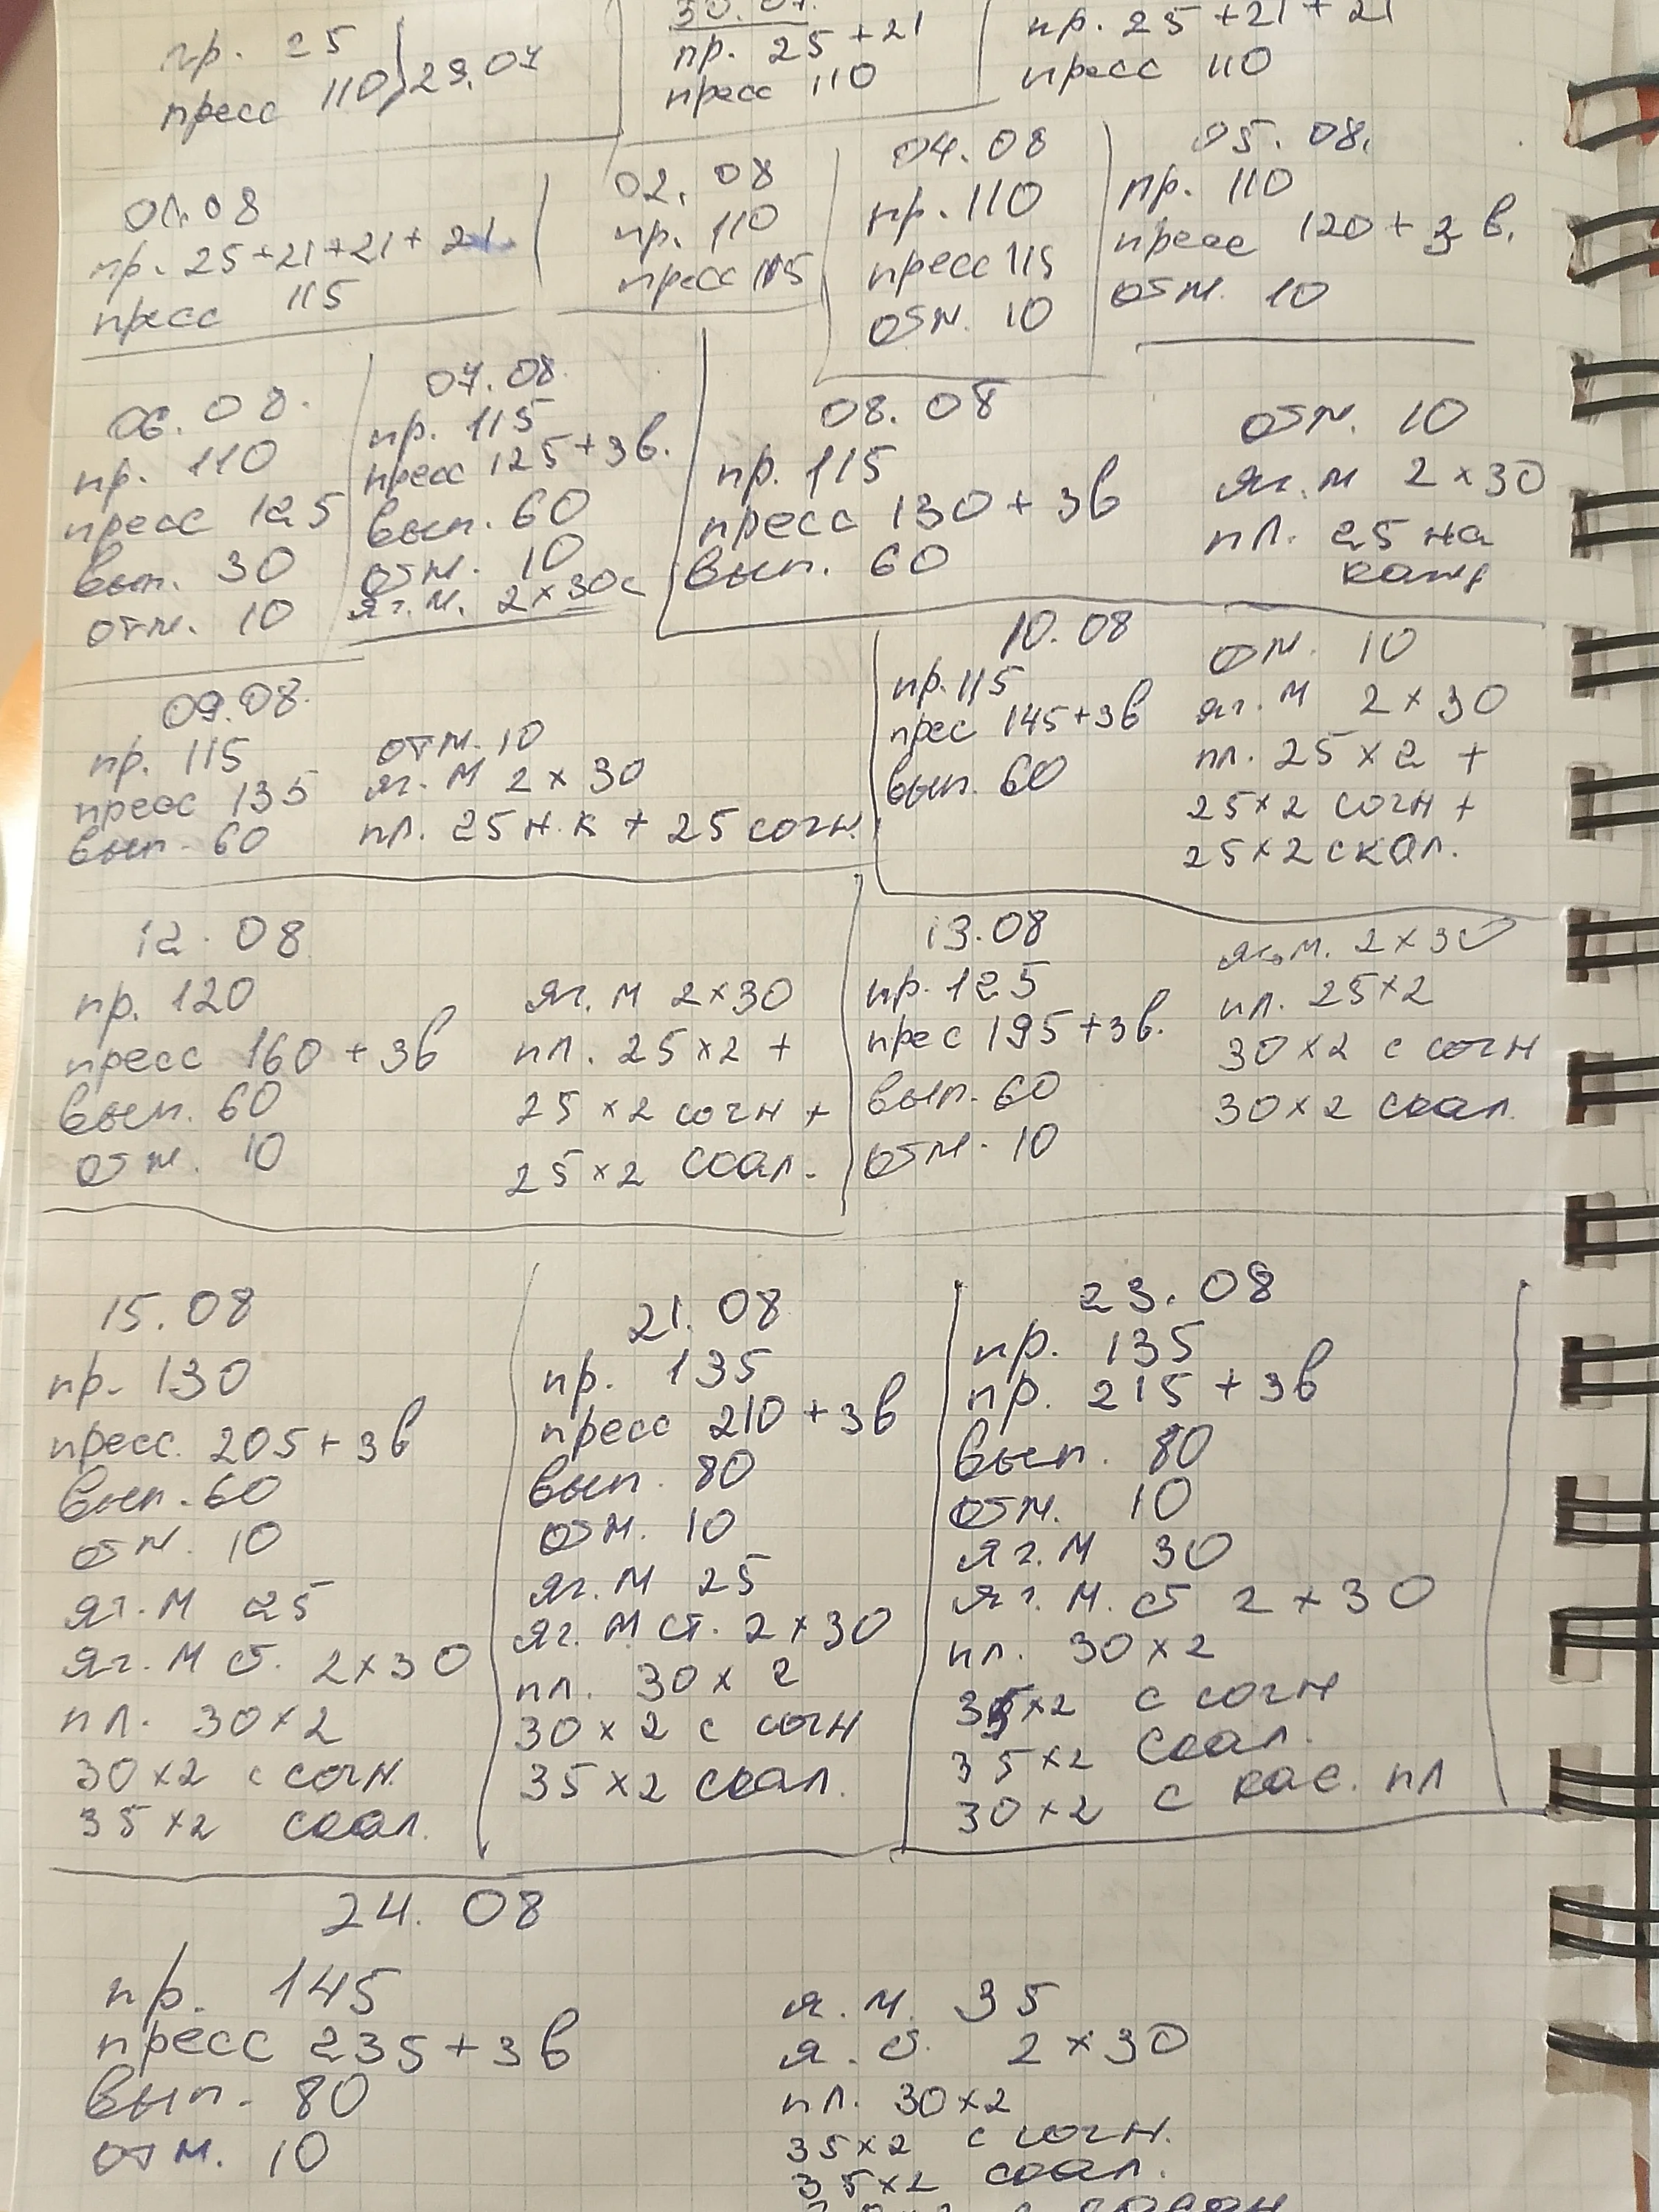 пр. 25
пресс 110
29.07
30.07.
пр. 25+21
пресс 110
пр. 25+21+21
пресс 110
01.08
пр. 25+21+21+21
пресс 115
02.08
пр. 110
пресс 115
04.08
пр. 110
пресс 115
отж. 10
05.08.
пр. 110
пресс 120+3 в.
отж. 10
06.08.
пр. 110
пресс 125
вып. 30
отж. 10
07.08.
пр. 115
пресс 125+3в.
вып. 60
отж. 10
яг. м. 2×30с
08.08
пр. 115
пресс 130+3в
вып. 60
отж. 10
яг. м 2×30
пл. 25 на
кажд
09.08.
пр. 115
пресс 135
вып. 60
отж. 10
яг. м 2×30
пл. 25 н.к + 25 согн.
10.08
пр. 115
прес 145+3в
вып. 60
отж. 10
яг. м 2×30
пл. 25×2 +
25×2 согн +
25×2 скал.
12.08
пр. 120
пресс 160+3в
вып. 60
отж. 10
яг. м 2×30
пл. 25×2 +
25×2 согн +
25×2 скал.
13.08
пр. 125
прес 195+3в.
вып. 60
отж. 10
яг. м. 2×30
пл. 25×2
30×2 с согн
30×2 скал.
15.08
пр. 130
пресс. 205+3в
вып. 60
отж. 10
яг. м 25
яг. м ст. 2×30
пл. 30×2
30×2 с согн.
35×2 скал.
21.08
пр. 135
пресс 210+3в
вып. 80
отж. 10
яг. м 25
яг. м ст. 2×30
пл. 30×2
30×2 с согн
35×2 скал.
23.08
пр. 135
пр. 215+3в
вып. 80
отж. 10
яг. м 30
яг. м. ст 2×30
пл. 30×2
35×2 с согн
35×2 скал.
30×2 с кас. пл
24.08
пр. 145
пресс 235+3в
вып. 80
отж. 10
я. м. 35
я. ст. 2×30
пл. 30×2
35×2 с согн.
35×2 скал.